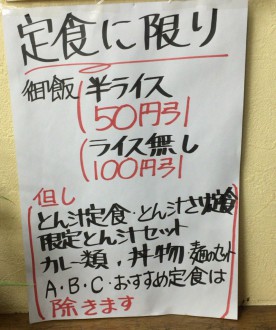 定食に限り
御飯 半ライス
50円引
ライス無し
100円引
但し
とん汁定食・とん汁さば
限定とん汁セット
カレー類、丼物 麺のセット
A・B・C・おすすめ定食は
除きます